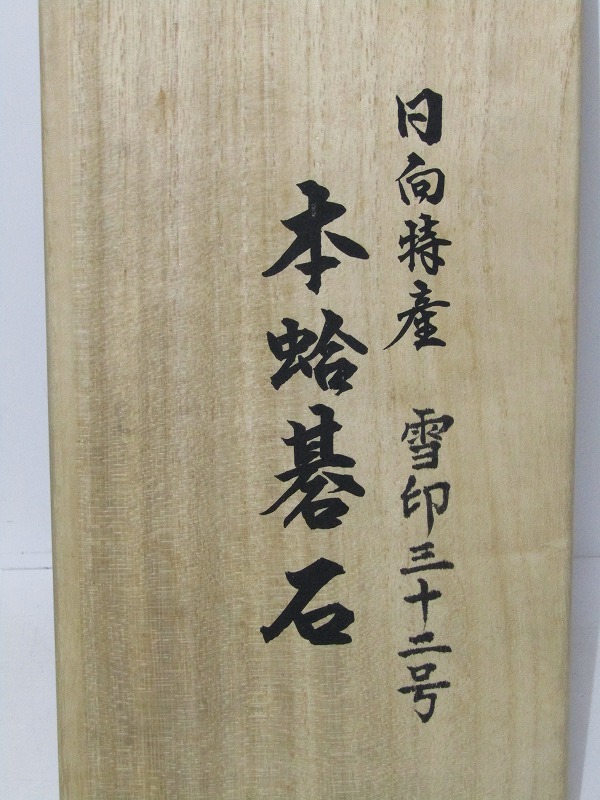 日向特産 雪印三十二号
本蛤碁石